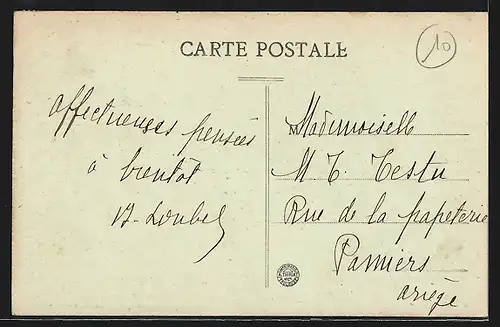 CARTE POSTALE
10
Affectueuses pensées
à bientôt
Mademoiselle
M. T. Testu
Rue de la papeterie
Pamiers
Ariège